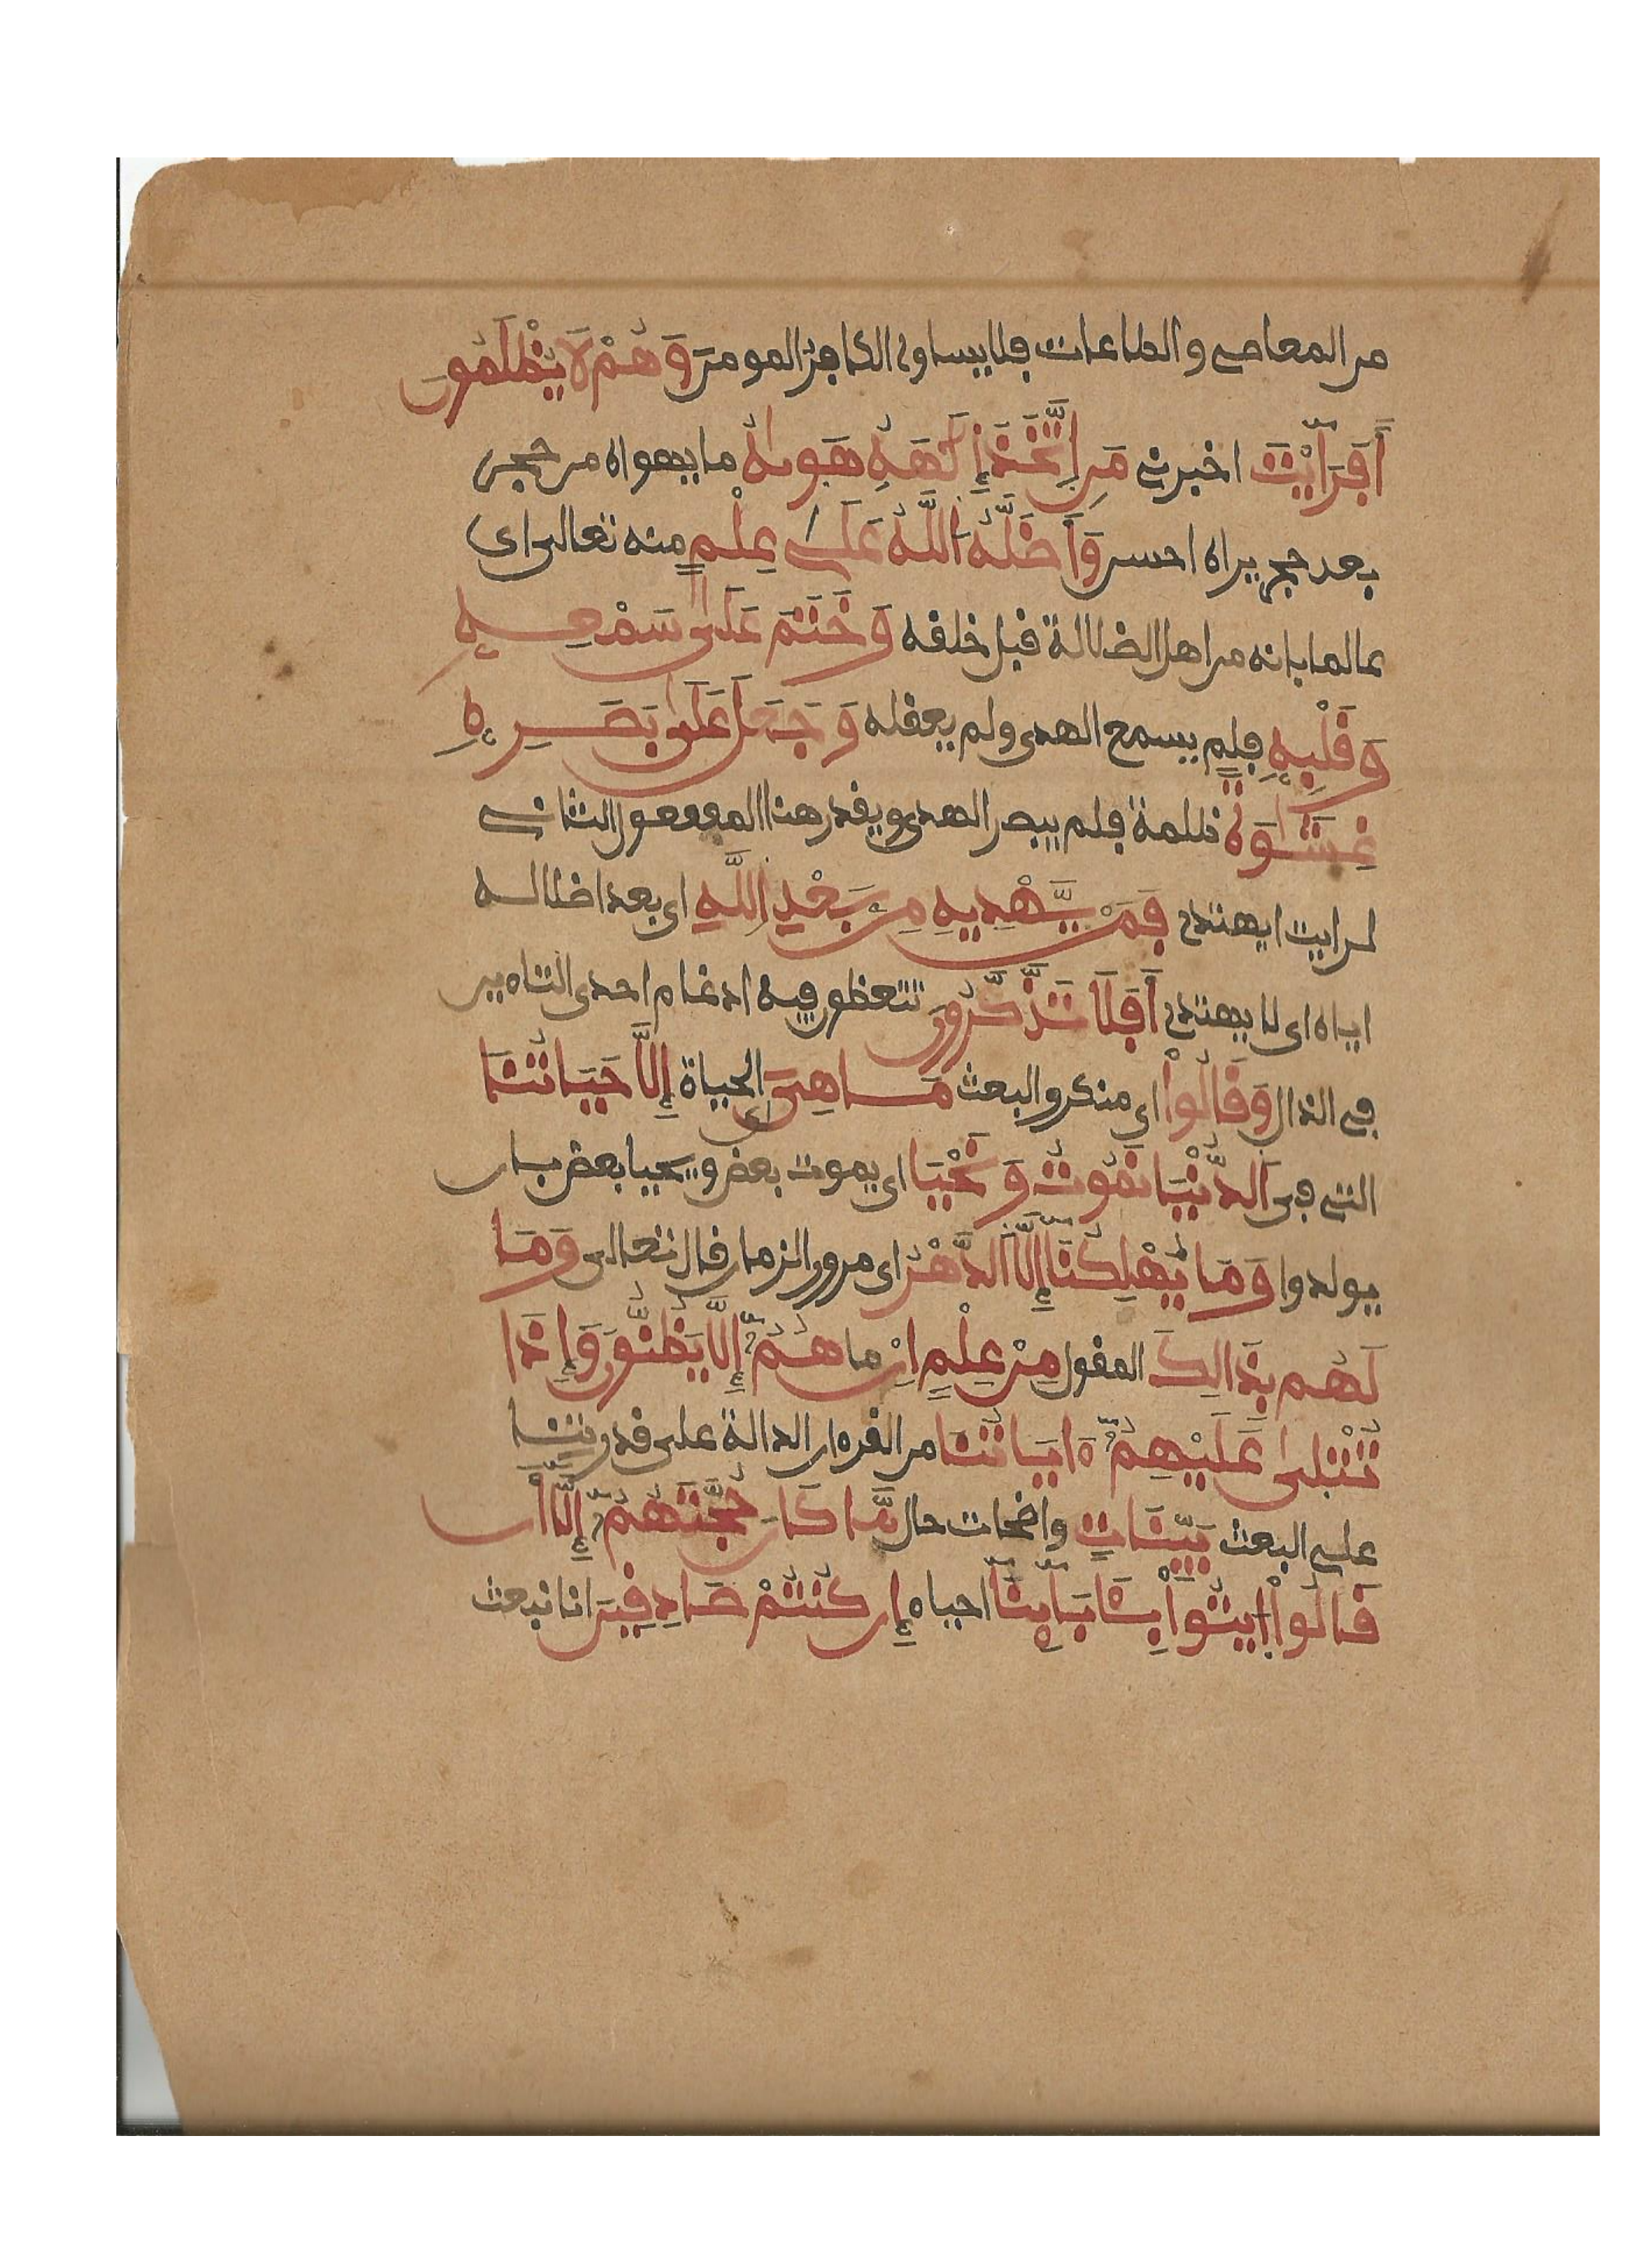 من المعاصي والطاعات فلا يساوى الكافر المومن وَهُمْ لَا يُظْلَمُونَ
أَفَرَأَيْتَ اخبرني مَنِ اِتَّخَذَ إِلَهَهُ هَوٰىهُ ما يهواه من حجر
بعد حجر يراه احسن وَأَضَلَّهُ اَللَّهُ عَلَىٰ عِلْمٍ منه تعالى اي
عالما بانه من اهل الضلالة قبل خلقه وَخَتَمَ عَلَىٰ سَمْعِهِ
وَقَلْبِهِ فلم يسمع الهدى ولم يعقله وَجَعَلَ عَلَىٰ بَصَرِهِ
غِشَٰوَةً ظلمة فلم يبصر الهدى ويقدر هنا المفعول الثاني
لرايت ايهتدي فَمَنْ يَّهْدِيهِ مِنۢ بَعْدِ اِللَّهِ اي بعد اضلاله
اياه اى لا يهتدي أَفَلَا تَذَّكَّرُونَ تتعظون فيه ادغام احدى التاءين
في الذال وَقَالُوا۟ اي منكرو البعث مَا هِيَ اي الحياة إِلَّا حَيَاتُنَا
التي في اَلدُّنْيَا نَمُوتُ وَنَحْيَا اى يموت بعض ويحيا بعض بان
يولدوا وَمَا يُهْلِكُنَا إِلَّا اَلدَّهْرُ اى مرور الزمان قال تعالى وَمَا
لَهُم بِذَالِكَ المقول مِنْ عِلْمٍ اِنْ ما هُمُۥٓ إِلَّا يَظُنُّونَ وَإِذَا
تُتْلَىٰ عَلَيْهِمُۥٓ ءَايَاتُنَا من القرءان الدالة على قدرتنا
على البعث بَيِّنَاتٍ واضحات حال مَّا كَانَ حُجَّتَهُمُۥٓ إِلَّا أَن
قَالُوا۟ اُيتُوا۟ بِـَٔابَآئِنَا احياء إِن كُنتُمْ صَادِقِينَ انا نبعث